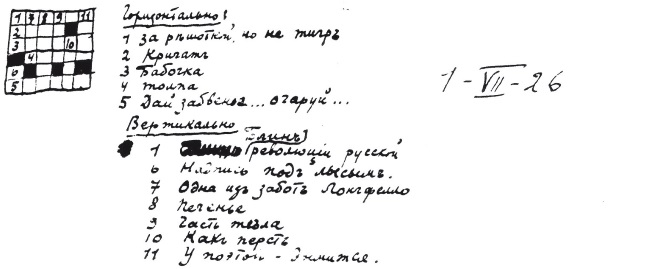 1 7 8 9 11
2
3 10
4
6
5
Горизонтально:
1 За рѣшоткой, но не тигръ
2 Кричать
3 Бабочка
4 толпа
5 Дай забвенье... очаруй...
Вертикально
1 Блинъ революціи русской
6 Надпись подъ лысымъ.
7 Одна изъ заботъ Лонгфелло
8 Печенье
9 Часть жезла
10 Какъ персть
11 У поэтовъ - зиждится.
1 - VII - 26